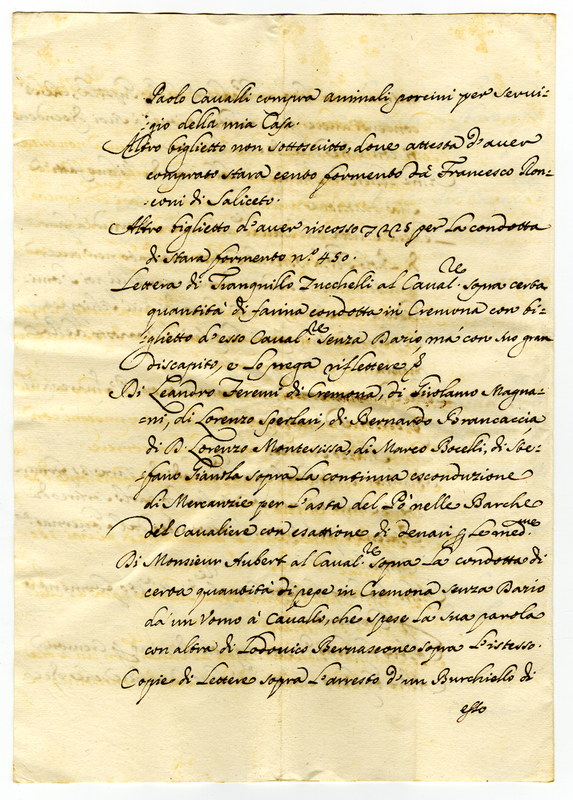 Paolo Cavalli compra animali porcini per servi-
gio della mia Casa.
Altro biglietto non sottoscritto, dove attesta d'aver
comprato stara cento formento dà Francesco Ron-
coni di Saliceto.
Altro biglietto d'aver riscosso 7225 per la condotta
di stara formento n.º 450.
Lettera di Tranquillo Zucchelli al Caval.re sopra certa
quantità di farina condotta in Cremona con bi-
glietto d'esso Caval.re senza Dazio, mà con suo gran
discapito, e lo prega riflettere
Di Leandro Feremi di Cremona, di Girolamo Magna-
ni, di Lorenzo Sperlari, di Bernardo Brancaccia
di D. Lorenzo Montesissa, di Marco Bocelli, di Ste-
fano Fianola sopra la continua esconduzione
di Mercanzie per l'asta del Pò nelle Barche
del Cavaliere con esattione di denari
Di Monsieur Aubert al Caval.re sopra la condotta di
certa quantità di pepe in Cremona senza Dazio
da un Uomo à Cavallo, che spese la sua parola
con altra di Lodovico Bernascone sopra l'istesso.
Copie di Lettere sopra l'arresto d'un Burchiello di
esso